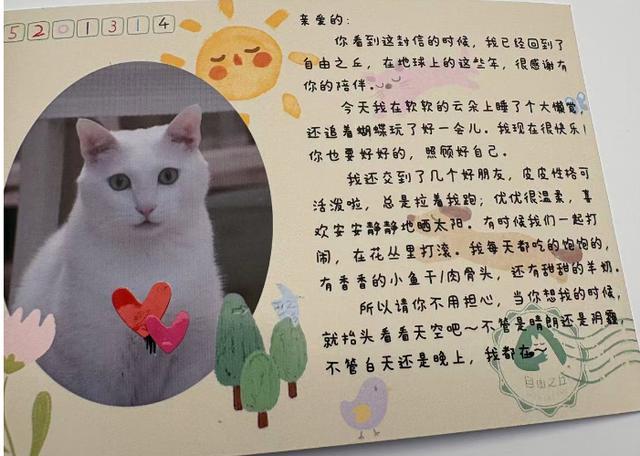 5201314
亲爱的:
你看到这封信的时候，我已经回到了
自由之丘，在地球上的这些年，很感谢有
你的陪伴。
今天我在软软的云朵上睡了个大懒觉，
还追着蝴蝶玩了好一会儿。我现在很快乐！
你也要好好的，照顾好自己。
我还交到了几个好朋友，皮皮性格可
活泼啦，总是拉着我跑；优优很温柔，喜
欢安安静静地晒太阳。有时候我们一起打
闹，在花丛里打滚。我每天都吃的饱饱的，
有香香的小鱼干/肉骨头，还有甜甜的羊奶。
所以请你不用担心，当你想我的时候，
就抬头看看天空吧～不管是晴朗还是阴霾，
不管白天还是晚上，我都在～
自由之丘